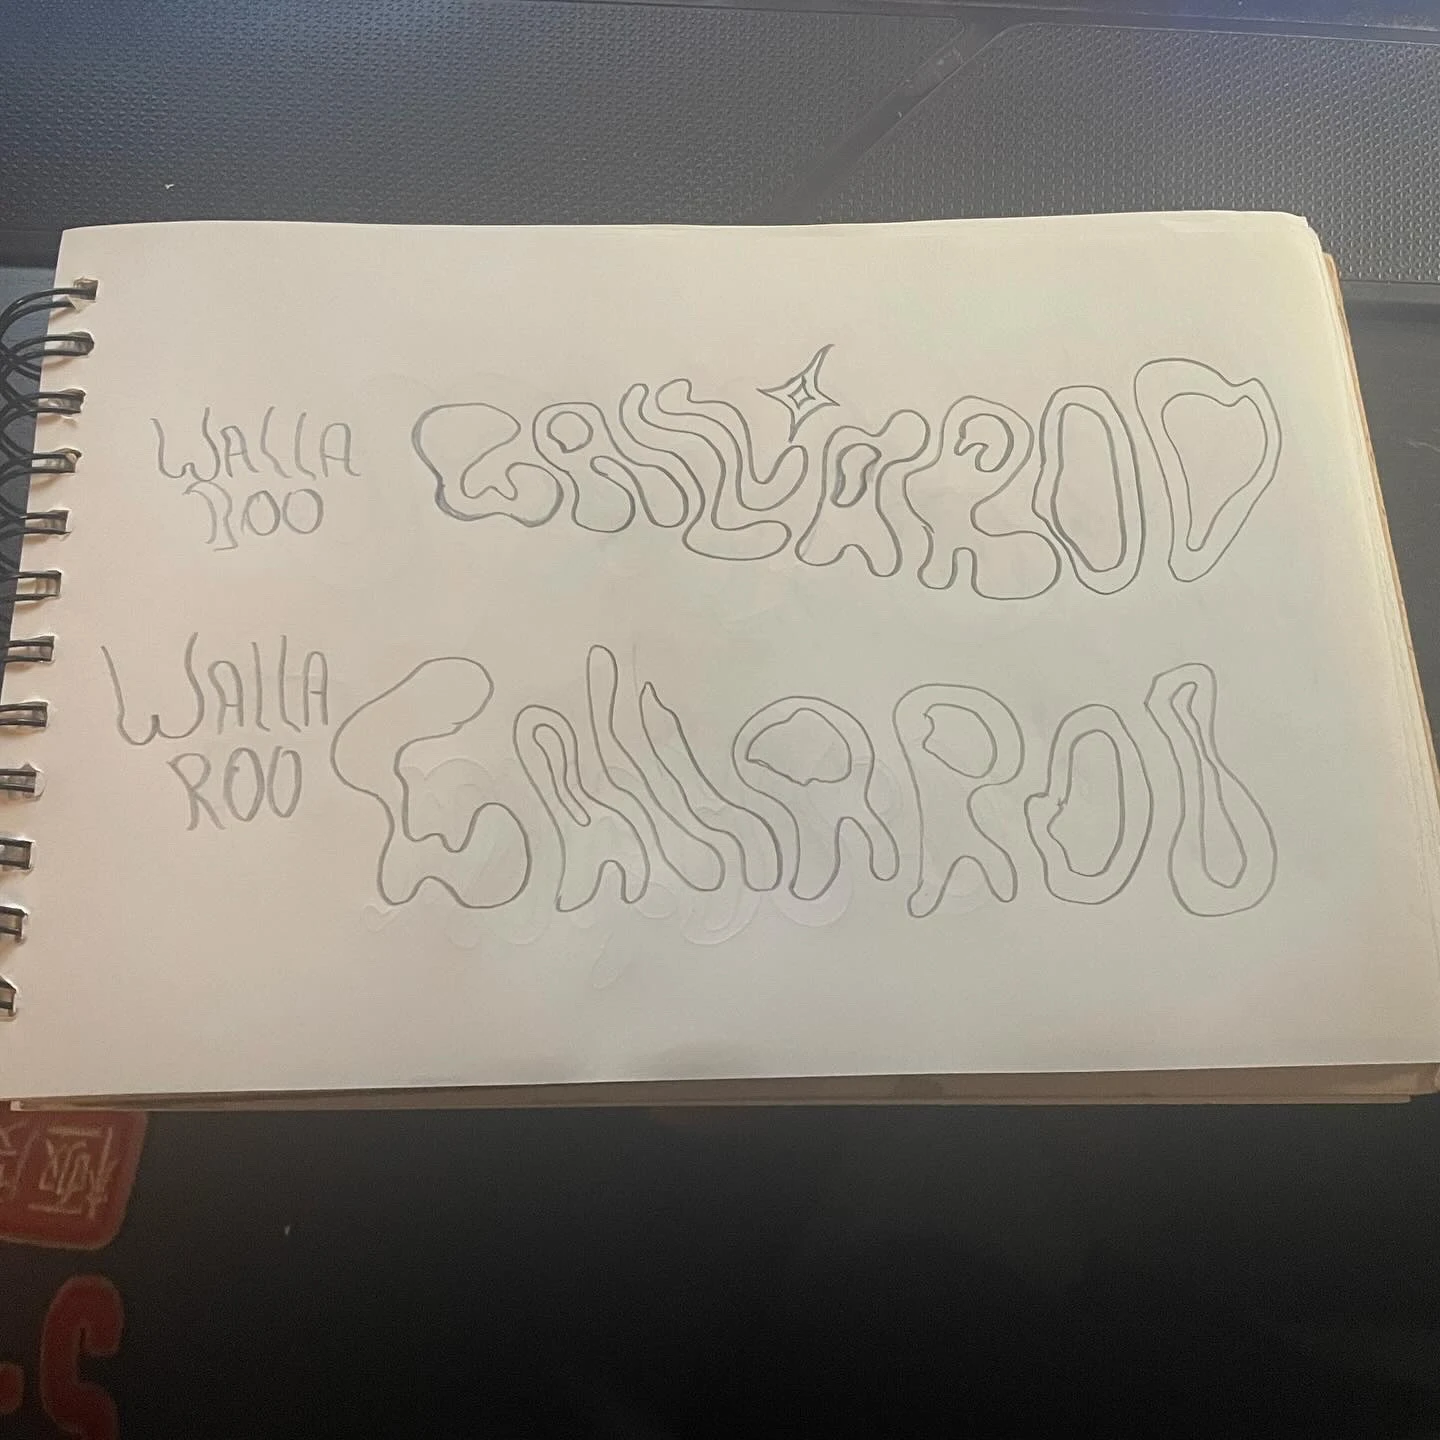 WALLA
ROO
WALLAROO
WALLA
ROO
WALLAROO